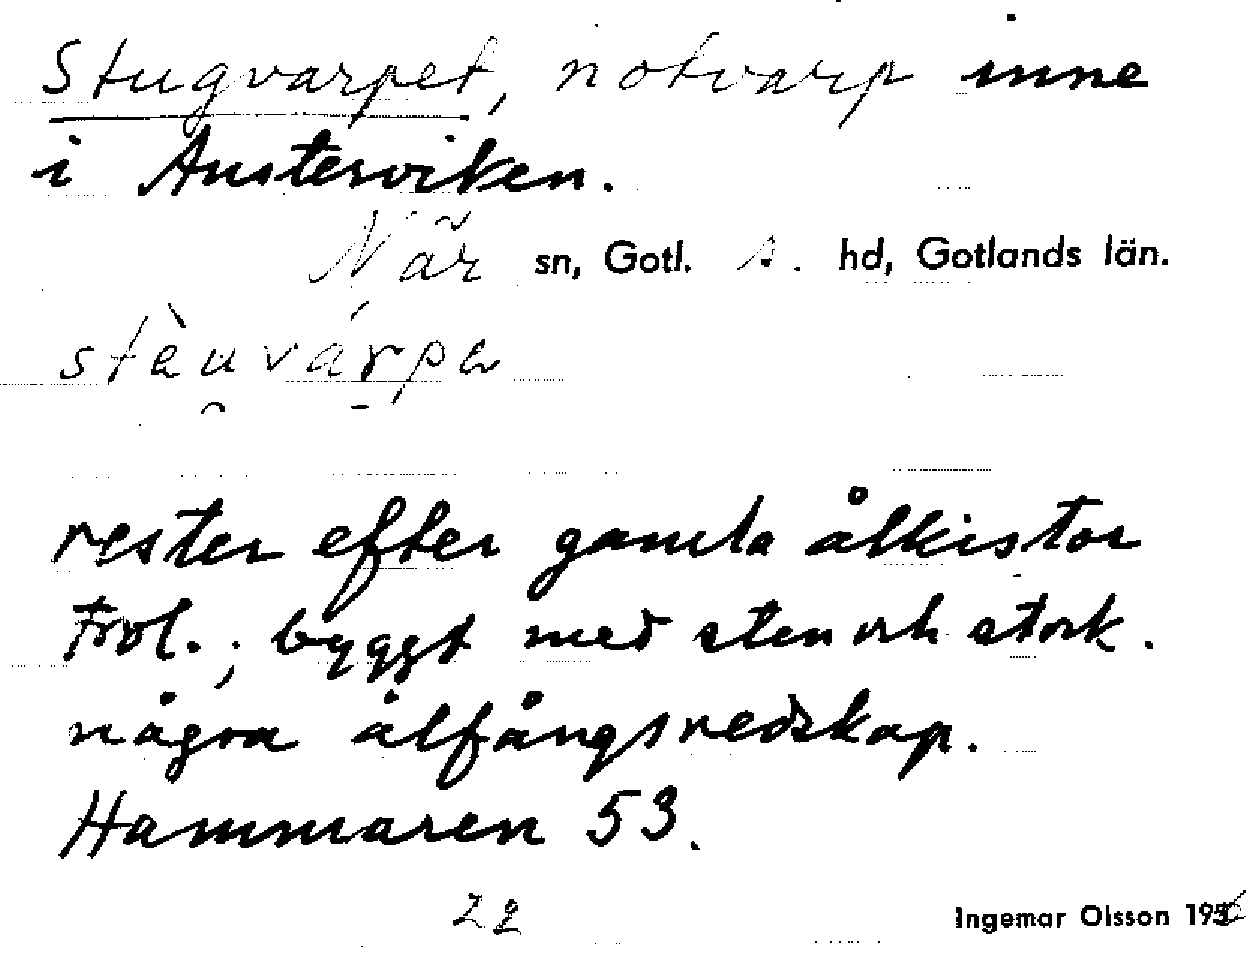 Stugvarpet, notvarp inne
i Austerviken.
När sn, Gotl. s. hd, Gotlands län.
stèuvárpa
rester efter gamla ålkistor
trol.; byggt med sten och stock.
några ålfångsredskap.
Hammaren 53.
22
Ingemar Olsson 1956